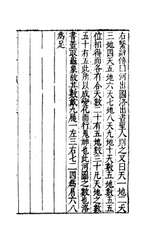 右繫辭傳曰河出圖洛出書聖人則之又曰天一地二天
三地四天五地六天七地八天九地十天數五地數五五
位相得而各有合天數二十有五地數三十凡天地之數
五十有五此所以成變化而行鬼神也此河圖之數也洛
書蓋取龜象故其數戴九履一左三右七二四爲肩六八
爲足